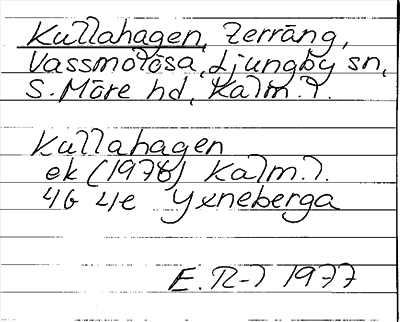 Kullahagen, Terräng,
Vassmolösa, Ljungby sn,
S. Möre hd, Kalm.l.
Kullahagen
ek (1978) Kalm.l.
4G 4e Yxneberga
E. R-l 1977